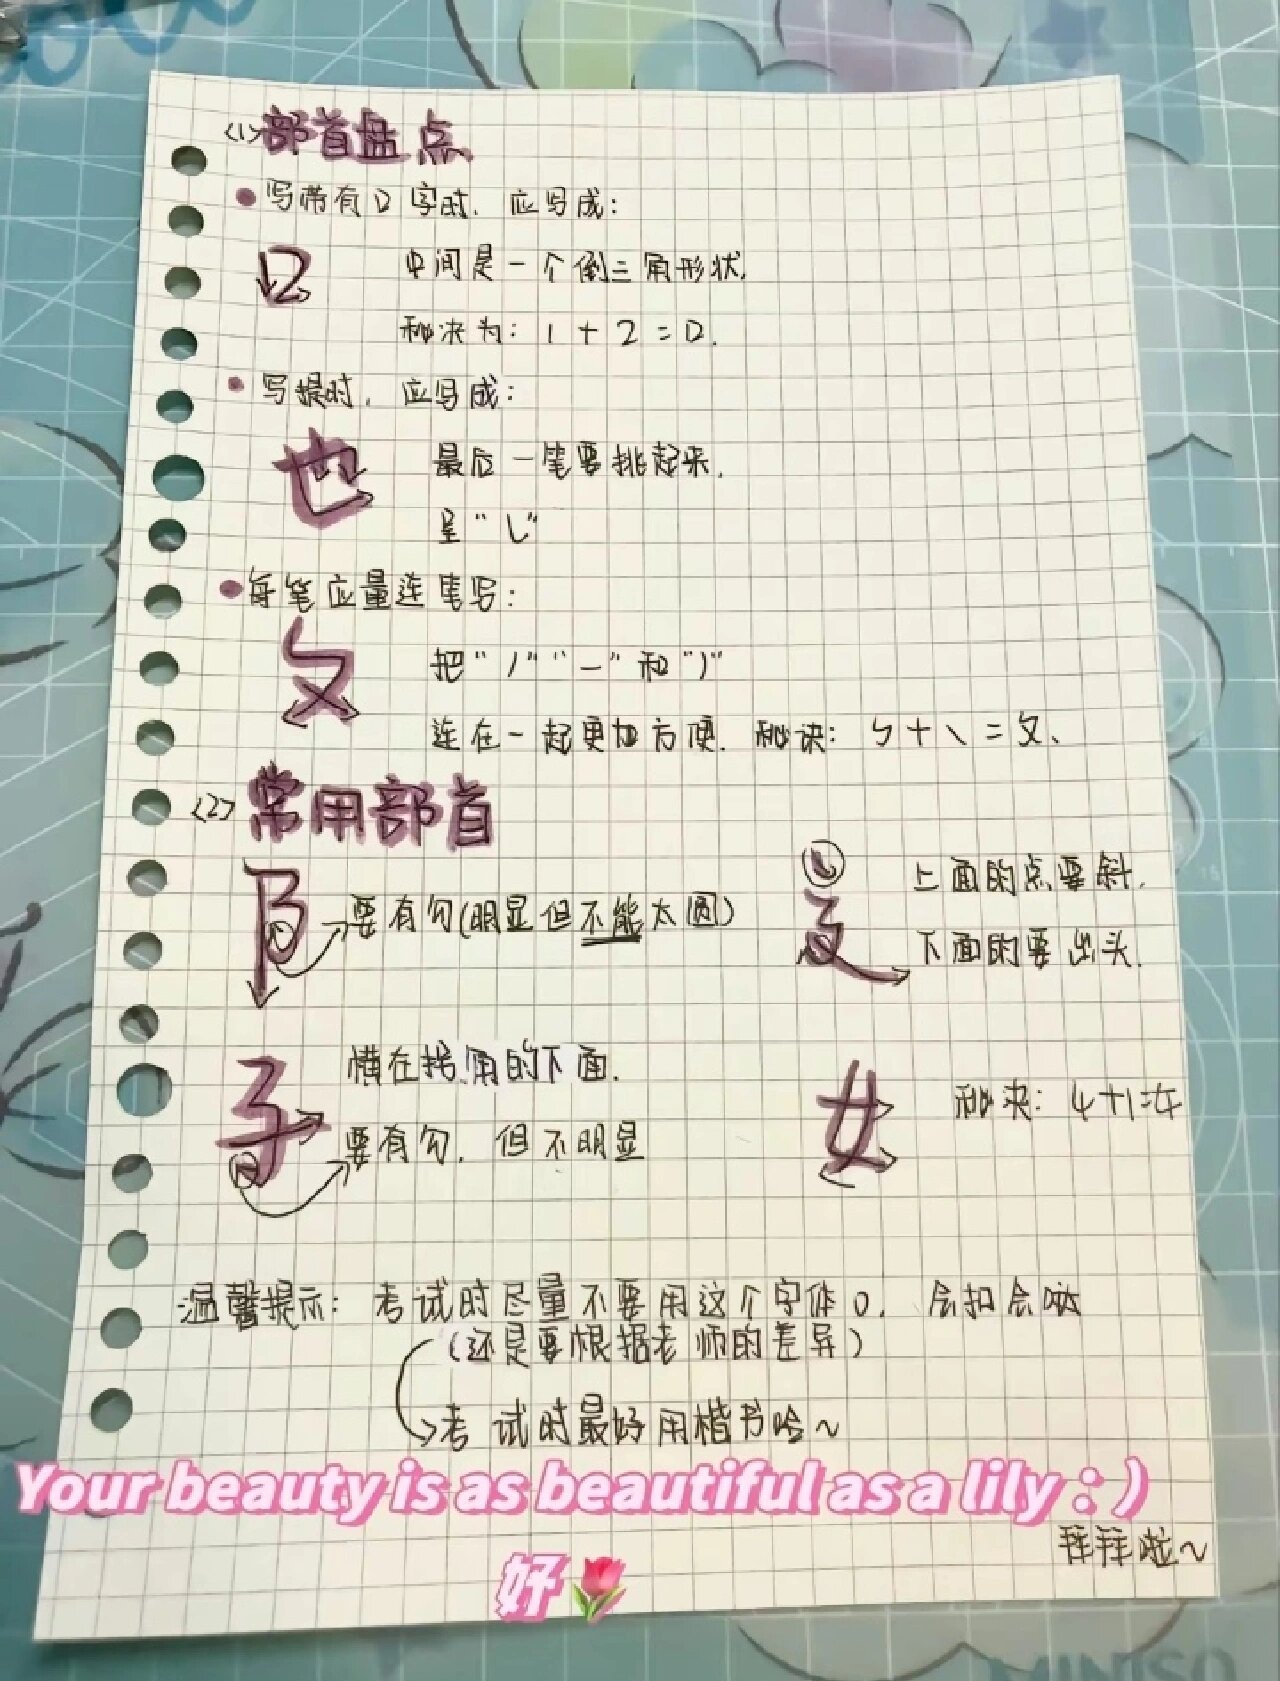 <1>部首盘点
写带有口字时，应写成：
口
中间是一个倒三角形状.
秘决为：1+2=口.
写提时，应写成：
也
最后一笔要挑起来.
呈"乚"
每笔应量连笔写：
攵
把"丿""一"和"丿"
连在一起更加方便. 秘诀：ㄅ+㇏=攵、
<2>常用部首
阝
要有勾(明显但不能太圆)
上面的点要斜.
下面的要出头.
子
横在拐角的下面.
要有勾，但不明显
女
秘决：4+1=女
温馨提示：考试时尽量不要用这个字体o，会扣
(还是要根据老师的差异)
考试时最好用楷书哈~
Your beauty is as beautiful as a lily : )
拜拜啦~
好🌷
MINISO